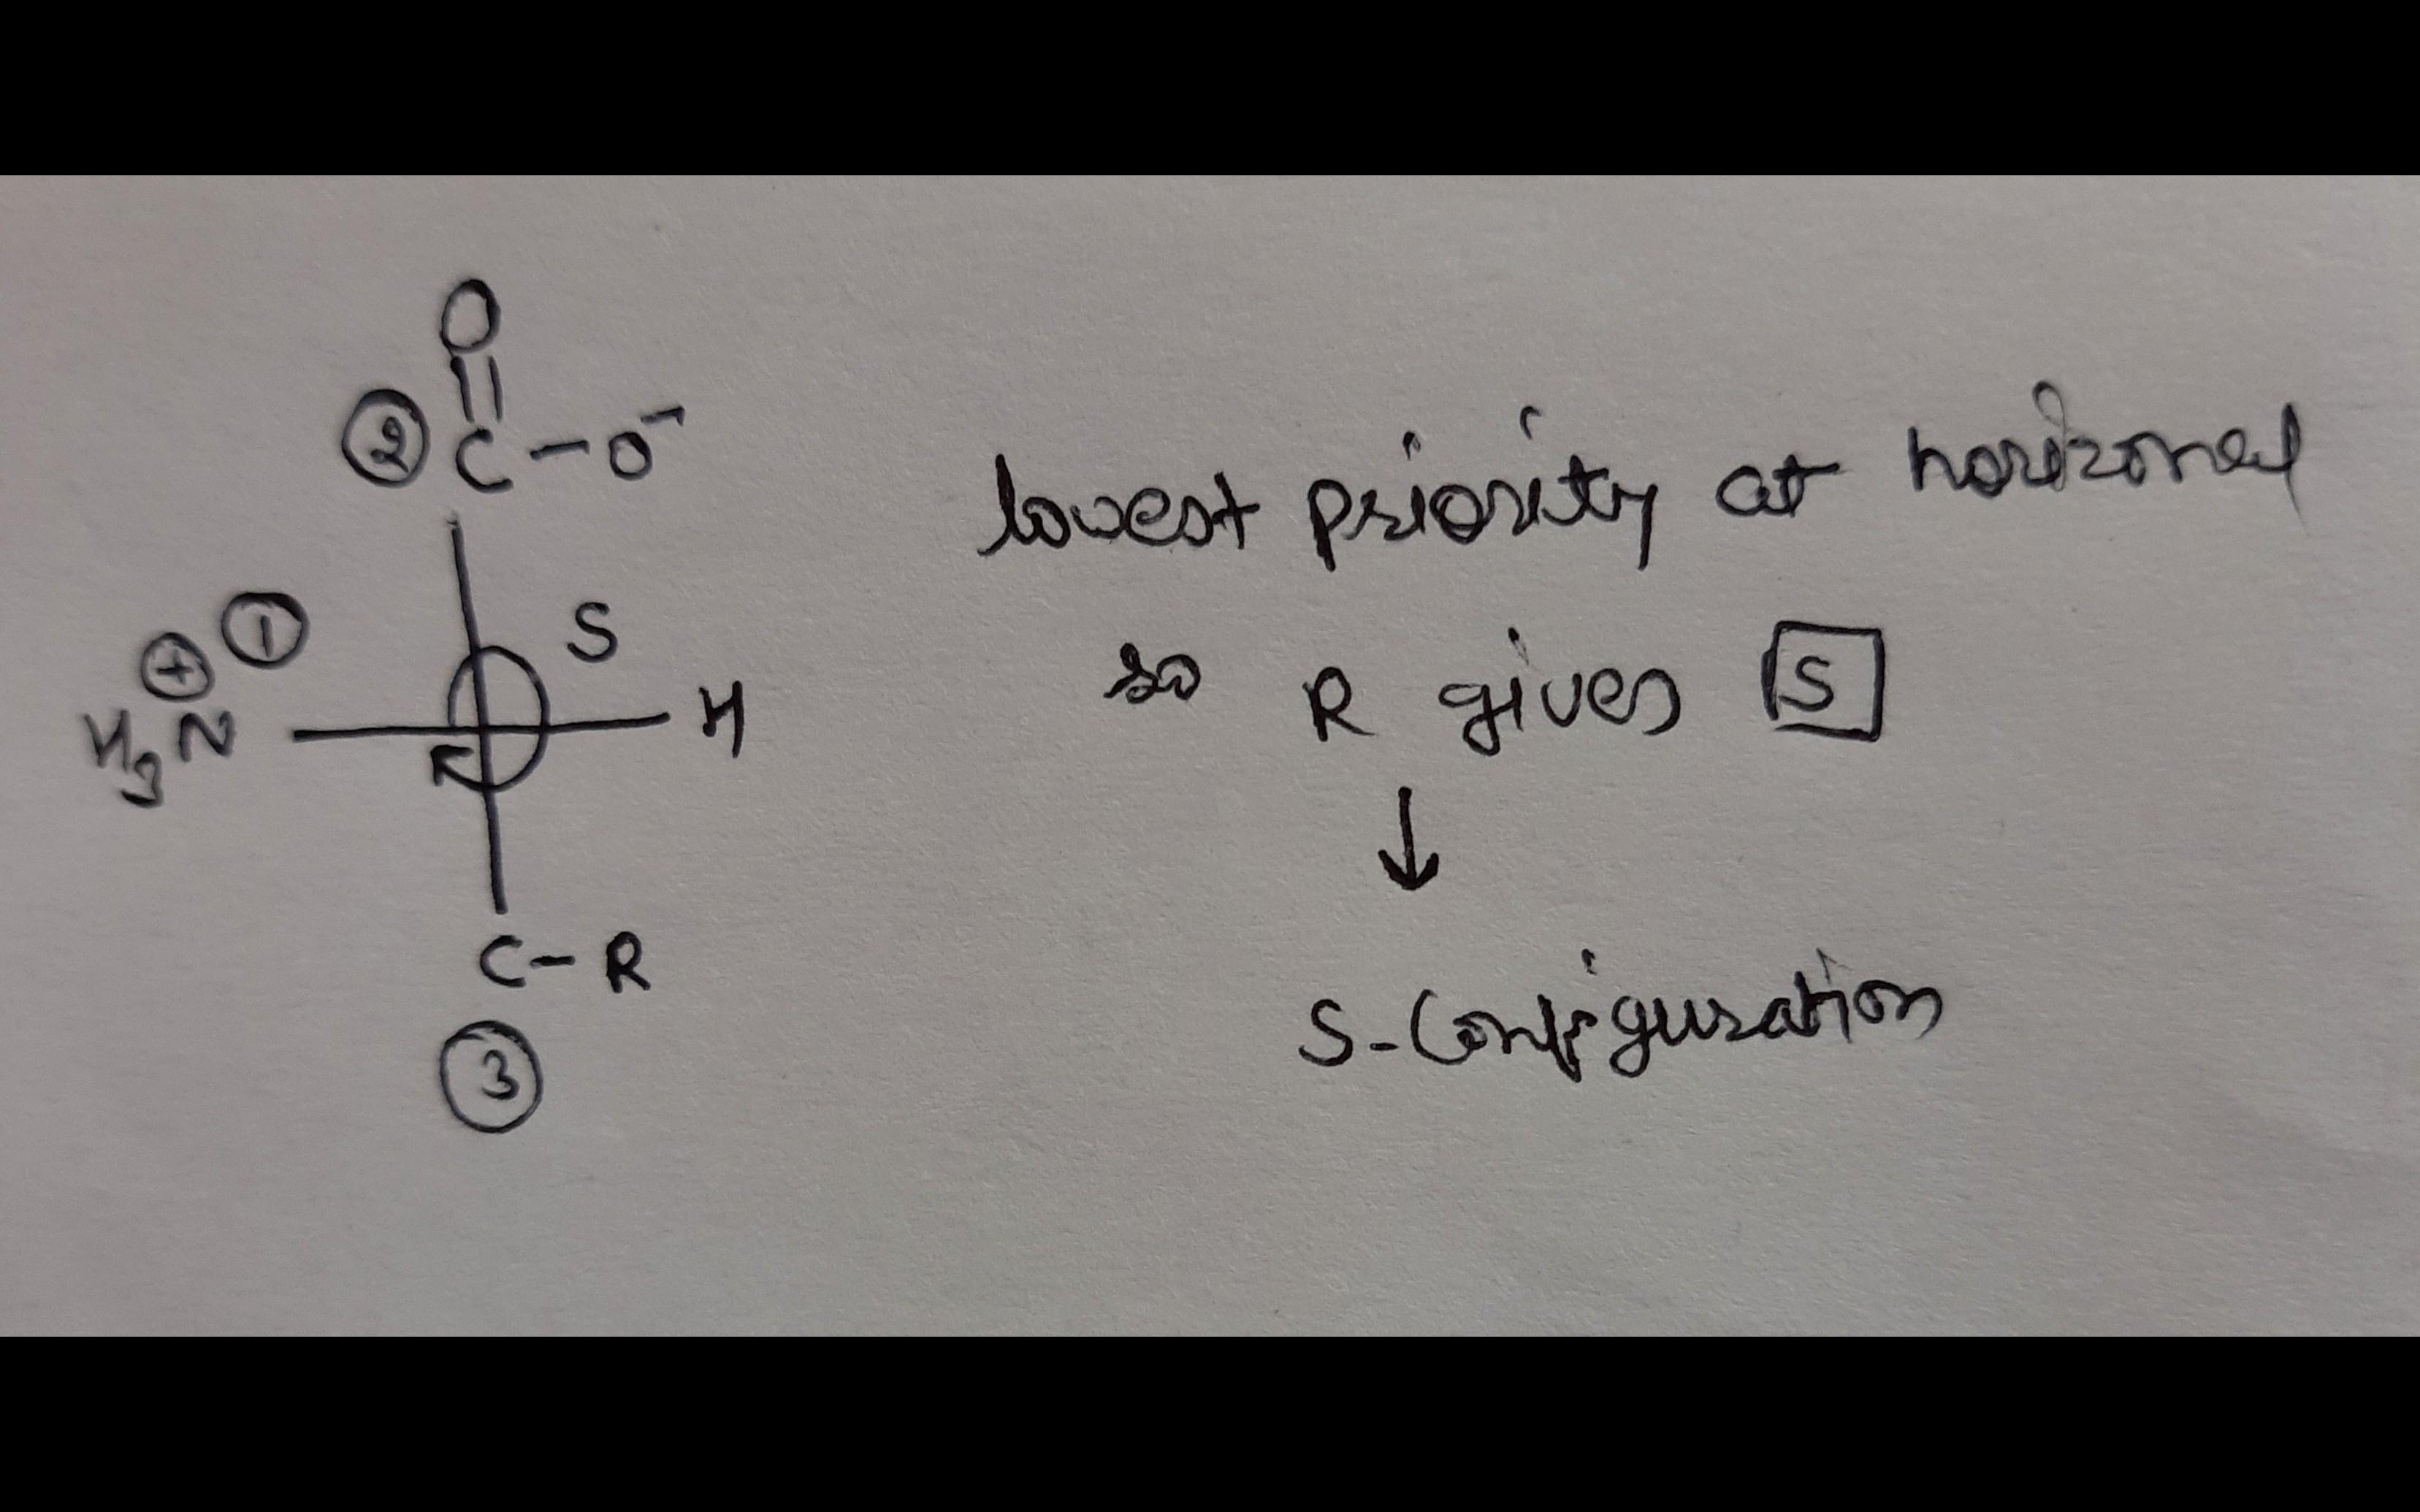 O
② C - O⁻
⊕ ① S
H₃N H
C - R
③
lowest priority at horizonal
so R gives S
↓
S-Configuration